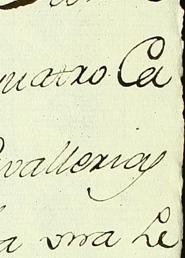 uatro Ca
vallerias
a vna Le